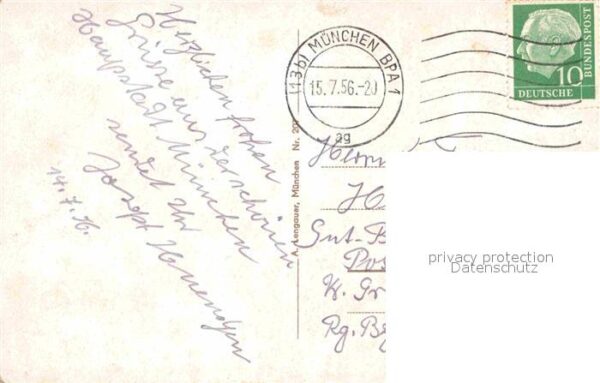 Herzlichen frohen
Grüsse aus der schönen
Hauptstadt München
sendet Ihr
Josef
14.7.56.
(13b) MÜNCHEN BPA 1
15.7.56.-20
ag
DEUTSCHE
BUNDESPOST
10
A. Lengauer, München Nr.
Herrn
H
Gut-B
Pos
K. Gr
Rg. Be
privacy protection
Datenschutz